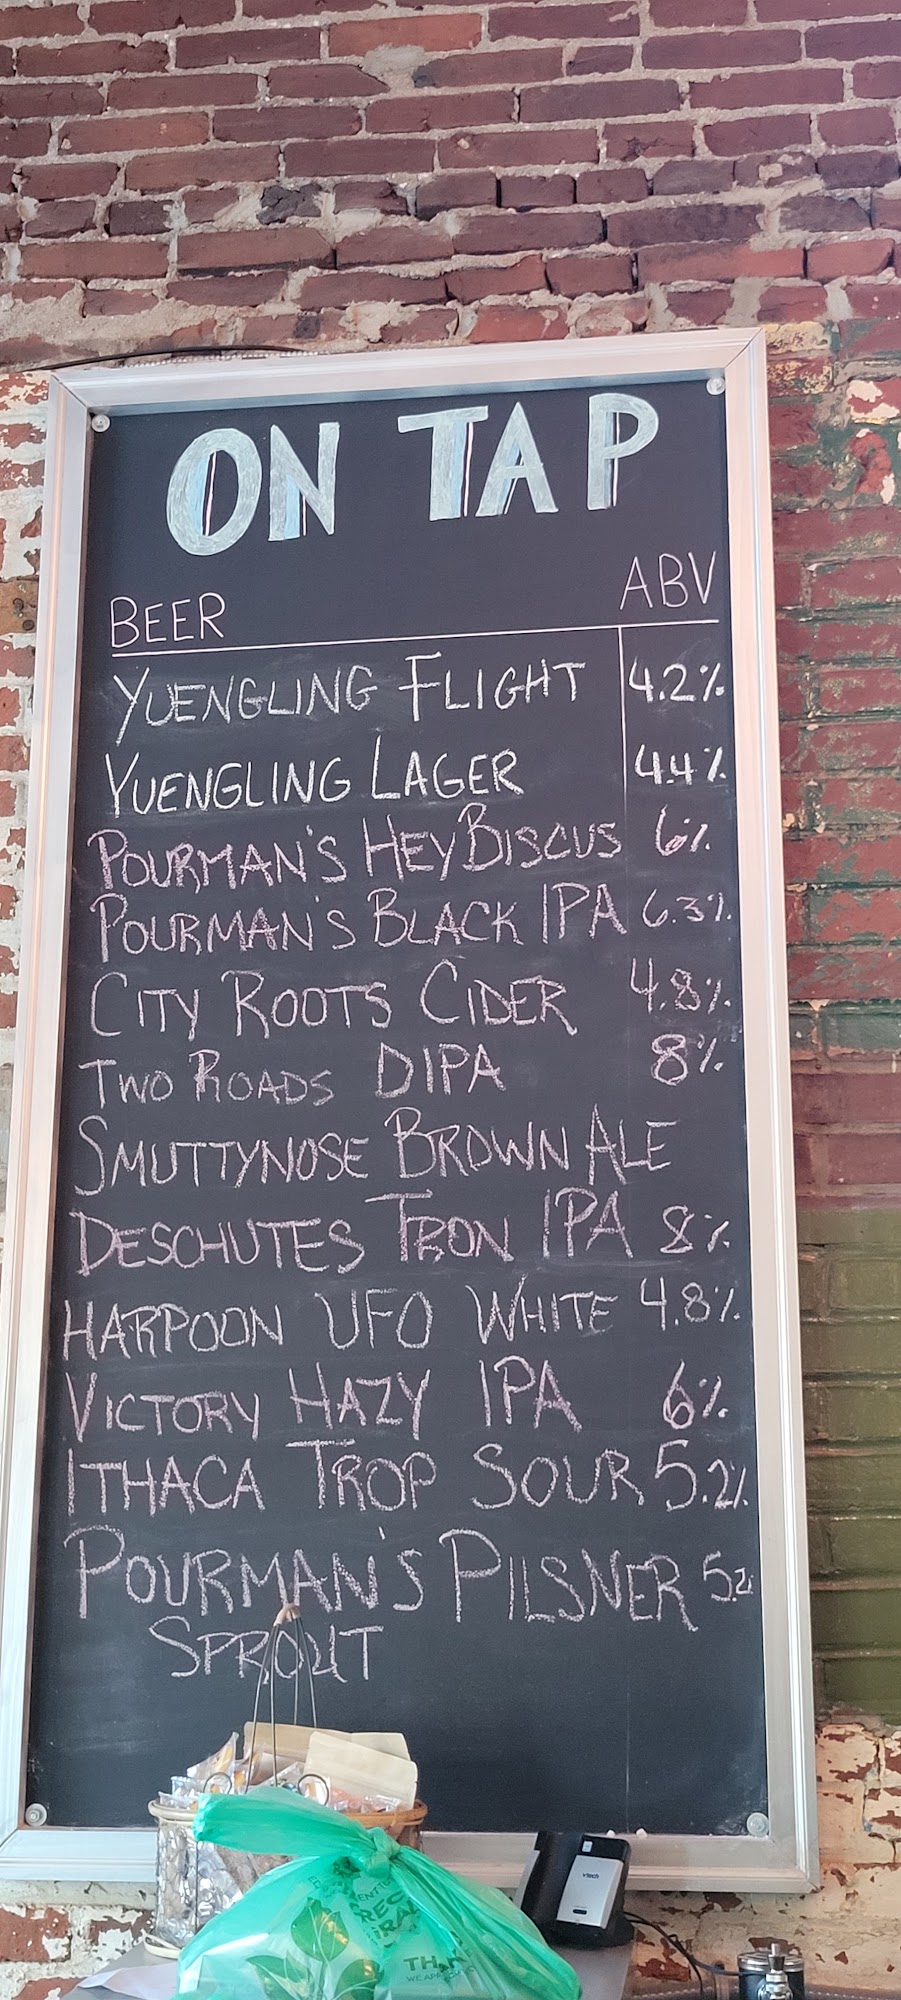 ON TAP
BEER ABV
YUENGLING FLIGHT 4.2%
YUENGLING LAGER 4.4%
POURMAN'S HEYBISCUS 6%
POURMAN'S BLACK IPA 6.3%
CITY ROOTS CIDER 4.8%
TWO ROADS DIPA 8%
SMUTTYNOSE BROWN ALE
DESCHUTES TRON IPA 8%
HARPOON UFO WHITE 4.8%
VICTORY HAZY IPA 6%
ITHACA TROP SOUR 5.2%
POURMAN'S PILSNER 5.2
SPROUT
vtech